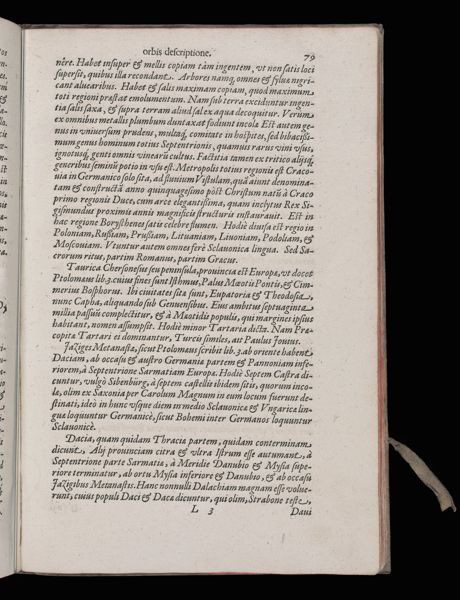 orbis descriptione. 79
nêre. Habet insuper & mellis copiam tàm ingentem, vt non satis loci
supersit, quibus illa recondant. Arbores namq́; omnes & syluæ nigri-
cant aluearibus. Habet & salis maximam copiam, quod maximum
toti regioni præstat emolumentum. Nam sub terra exciduntur ingen-
tia salis saxa, & supra terram aliud sal ex aqua decoquitur. Verùm
ex omnibus metallis plumbum duntaxat fodiunt incolæ. Est autem ge-
nus in vniuersum prudens, multaq́; comitate in hospites, sed bibacissi-
mum genus hominum totius Septentrionis, quamuis rarus vini vsus,
ignotusq́; genti omni vinearũ cultus. Factitia tamen ex tritico alijsq́;
generibus seminũ potio in vsu est. Metropolis totius regionis est Craco-
uia in Germanico solo sita, ad fluuium Vistulam, quã aiunt denomina-
tam & constructã anno quinquagesimo pòst Christum natũ à Craco
primo regionis Duce, cum arce elegantissima, quam inclytus Rex Si-
gismundus proximis annis magnificis structuris instaurauit. Est in
hac regione Borysthenes satis celebre flumen. Hodiè diuisa est regio in
Poloniam, Russiam, Prussiam, Lituaniam, Liuoniam, Podoliam, &
Moscouiam. Vtuntur autem omnes ferè Sclauonica lingua. Sed Sa-
crorum ritus, partim Romanus, partim Græcus.
Taurica Chersonesus seu peninsula, prouincia est Europæ, vt docet
Ptolomæus lib. 3. cuius fines sunt Isthmus, Palus Mæotis Pontis, & Cim-
merius Bosphorus. Ibi ciuitates sitæ sunt, Eupatoria & Theodosia,
nunc Capha, aliquando sub Genuensibus. Eius ambitus septuaginta
millia passuũ complectitur, & à Mæotidis populis, qui margines ipsius
habitant, nomen assumpsit. Hodiè minor Tartaria dicta. Nam Præ-
copitæ Tartari ei dominantur, Turcis similes, aît Paulus Jouius.
Jaziges Metanastæ, sicut Ptolomæus scribit lib. 3. ab oriente habent
Daciam, ab occasu & austro Germaniæ partem & Pannoniam infe-
riorem, à Septentrione Sarmatiam Europæ. Hodiè Septem Castra di-
cuntur, vulgò Sibenbürg, à septem castellis ibidem sitis, quorum inco-
læ, olim ex Saxonia per Carolum Magnum in eum locum fuerunt de-
stinati, ideò in hunc vsque diem in medio Sclauonicæ & Vngaricæ lin-
guæ loquuntur Germanicè, sicut Bohemi inter Germanos loquuntur
Sclauonicè.
Dacia, quam quidam Thraciæ partem, quidam conterminam
dicunt. Alij prouinciam citra & vltra Istrum esse autumant, à
Septentrione parte Sarmatiæ, à Meridie Danubio & Mysia supe-
riore terminatur, ab ortu Mysia inferiore & Danubio, & ab occasu
Jazigibus Metanastis. Hanc nonnulli Dalachiam magnam esse volue-
runt, cuius populi Daci & Dacæ dicuntur, qui olim, Strabone teste,
L 3 Daui